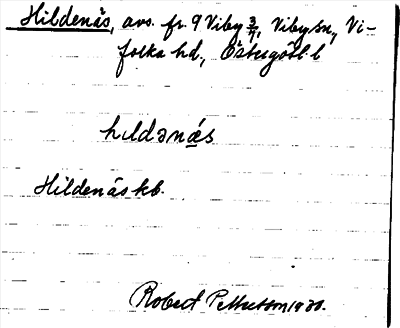 Hildenäs, avs. fr. 9 Viby 3/7, Viby sn, Vi-
folka hd, Östergötl. l
hıldənä́s
Hildenäs kb.
Robert Pettersson 1930.